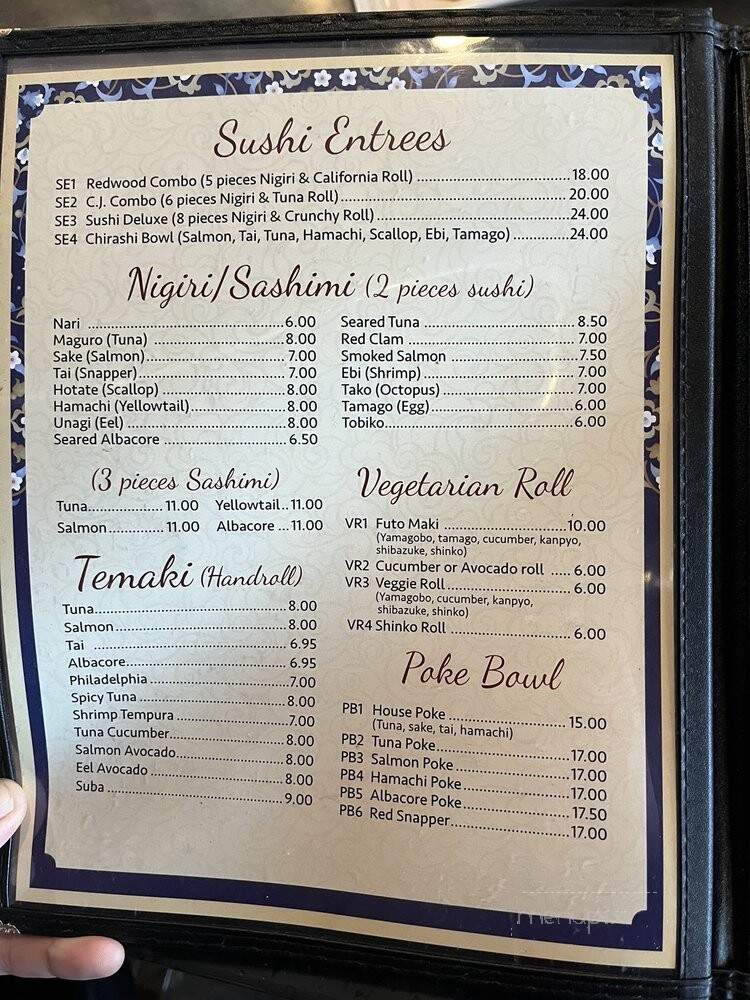 Sushi Entrees
SE1 Redwood Combo (5 pieces Nigiri & California Roll) 18.00
SE2 C.J. Combo (6 pieces Nigiri & Tuna Roll) 20.00
SE3 Sushi Deluxe (8 pieces Nigiri & Crunchy Roll) 24.00
SE4 Chirashi Bowl (Salmon, Tai, Tuna, Hamachi, Scallop, Ebi, Tamago) 24.00
Nigiri/Sashimi (2 pieces sushi)
Nari 6.00
Maguro (Tuna) 8.00
Sake (Salmon) 7.00
Tai (Snapper) 7.00
Hotate (Scallop) 8.00
Hamachi (Yellowtail) 8.00
Unagi (Eel) 8.00
Seared Albacore 6.50
Seared Tuna 8.50
Red Clam 7.00
Smoked Salmon 7.50
Ebi (Shrimp) 7.00
Tako (Octopus) 7.00
Tamago (Egg) 6.00
Tobiko 6.00
(3 pieces Sashimi)
Tuna 11.00 Yellowtail 11.00
Salmon 11.00 Albacore 11.00
Temaki (Handroll)
Tuna 8.00
Salmon 8.00
Tai 6.95
Albacore 6.95
Philadelphia 7.00
Spicy Tuna 8.00
Shrimp Tempura 7.00
Tuna Cucumber 8.00
Salmon Avocado 8.00
Eel Avocado 8.00
Suba 9.00
Vegetarian Roll
VR1 Futo Maki 10.00
(Yamagobo, tamago, cucumber, kanpyo,
shibazuke, shinko)
VR2 Cucumber or Avocado roll 6.00
VR3 Veggie Roll 6.00
(Yamagobo, cucumber, kanpyo,
shibazuke, shinko)
VR4 Shinko Roll 6.00
Poke Bowl
PB1 House Poke 15.00
(Tuna, sake, tai, hamachi)
PB2 Tuna Poke 17.00
PB3 Salmon Poke 17.00
PB4 Hamachi Poke 17.00
PB5 Albacore Poke 17.50
PB6 Red Snapper 17.00